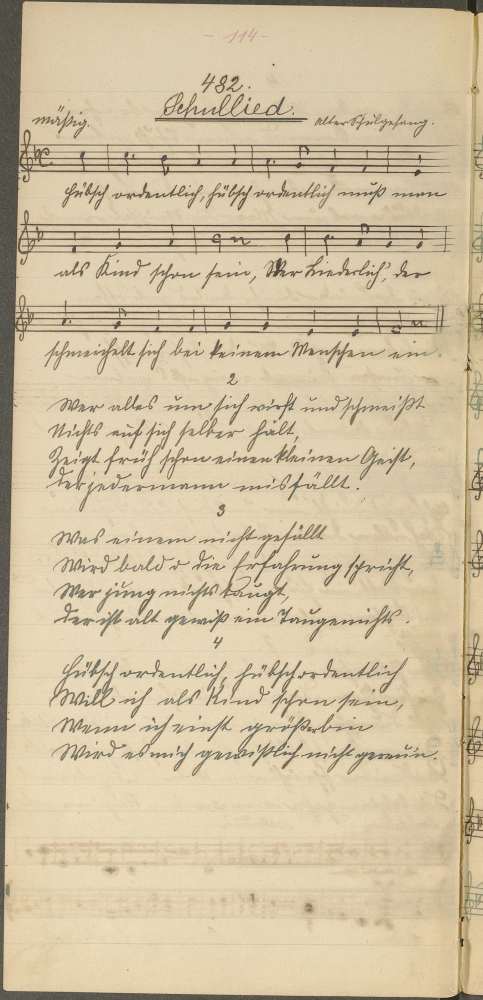 - 114 -
482.
Schullied.
mäßig.
alter Schulgesang.
Hübsch ordentlich, hübsch ordentlich muß man
als Kind schon sein, Wer liederlich, der
schmeichelt sich bei keinem Menschen ein.
2
Wer alles um sich wirft und schmeißt
Nichts auf sich selber hält,
Zeigt früh schon einen kleinen Geist,
der jedermann misfällt.
3
Was einem nicht gefällt
Wird bald d die Erfahrung spricht,
Wer jung nichts taugt,
der ist alt gewiß ein Taugenichts.
4
Hübsch ordentlich, hübsch ordentlich
Will ich als Kind schon sein,
Wenn ich einst größer bin
Wird es mich gewißlich nicht gereu'n.